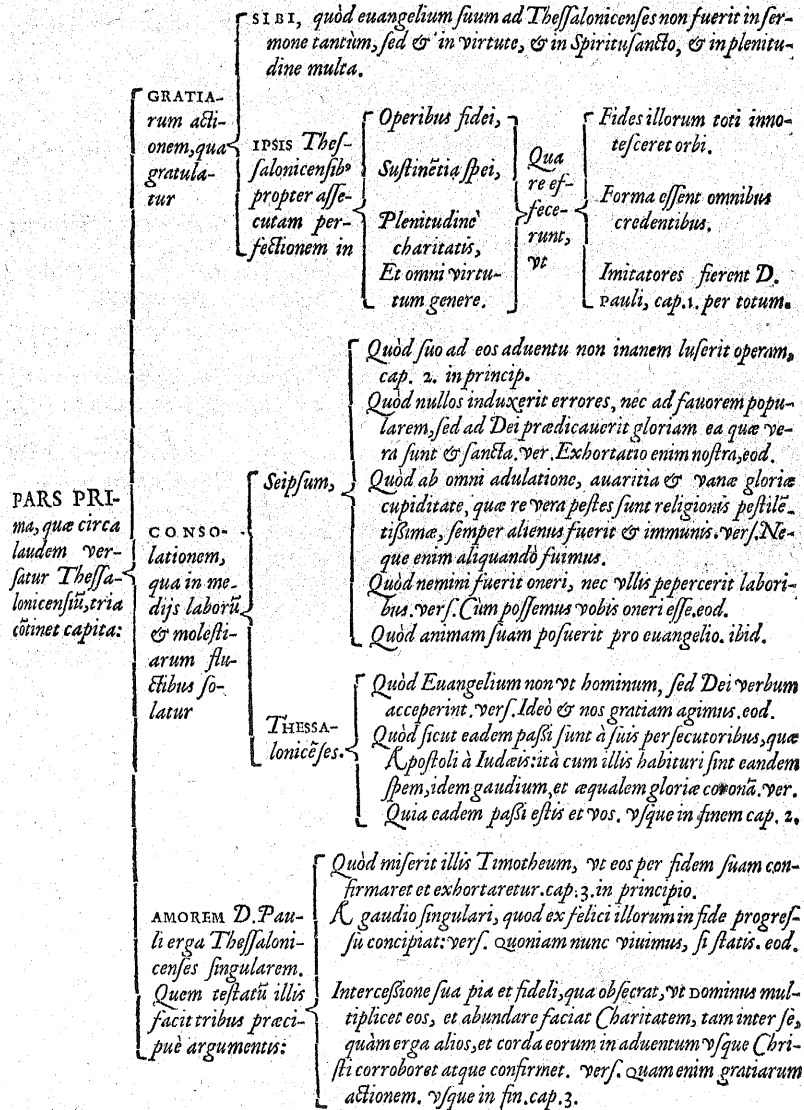 PARS PRI-
ma, quæ circa
laudem ver-
satur Thessa-
lonicensiũ, tria
cõtinet capita:
GRATIA-
rum acti-
onem, qua
gratula-
tur
SIBI, quòd euangelium suum ad Thessalonicenses non fuerit in ser-
mone tantùm, sed & in virtute, & in Spiritusancto, & in plenitu-
dine multa.
IPSIS Thes-
salonicensibꝰ
propter asse-
cutam per-
fectionem in
Operibus fidei,
Sustinẽtia spei,
Plenitudinẽ
charitatis,
Et omni virtu-
tum genere.
Qua
re ef-
fece-
runt,
vt
Fides illorum toti inno-
tesceret orbi.
Forma essent omnibus
credentibus.
Imitatores fierent D.
Pauli, cap.1. per totum.
CONSO-
lationem,
qua in me-
dijs laborũ
& molesti-
arum flu-
ctibus so-
latur
Seipsum,
Quòd suo ad eos aduentu non inanem luserit operam,
cap. 2. in princip.
Quòd nullos induxerit errores, nec ad fauorem popu-
larem, sed ad Dei prædicauerit gloriam ea quæ ve-
ra sunt & sancta. ver. Exhortatio enim nostra, eod.
Quòd ab omni adulatione, auaritia & vanæ gloriæ
cupiditate, quæ re vera pestes sunt religionis pestilẽ-
tissimæ, semper alienus fuerit & immunis. vers. Ne-
que enim aliquando fuimus.
Quòd nemini fuerit oneri, nec vllis pepercerit labori-
bus. vers. Cùm possemus vobis oneri esse. eod.
Quòd animam suam posuerit pro euangelio. ibid.
THESSA-
lonicẽses.
Quòd Euangelium non vt hominum, sed Dei verbum
acceperint. vers. Ideò & nos gratiam agimus. eod.
Quòd sicut eadem passi sunt à suis persecutoribus, quæ
Apostoli à Iudæis: ità cum illis habituri sint eandem
spem, idem gaudium, et æqualem gloriæ coronã. ver.
Quia eadem passi estis et vos. vsque in finem cap. 2.
AMOREM D. Pau-
li erga Thessaloni-
censes singularem.
Quem testatũ illis
facit tribus præci-
puè argumentis:
Quòd miserit illis Timotheum, vt eos per fidem suam con-
firmaret et exhortaretur. cap. 3. in principio.
A gaudio singulari, quod ex felici illorum in fide progres-
su concipiat: vers. Quoniam nunc viuimus, si statis. eod.
Intercessione sua pia et fideli, qua obsecrat, vt Dominus mul-
tiplicet eos, et abundare faciat Charitatem, tam inter se,
quàm erga alios, et corda eorum in aduentum vsque Chri-
sti corroboret atque confirmet. vers. Quam enim gratiarum
actionem. vsque in fin. cap. 3.